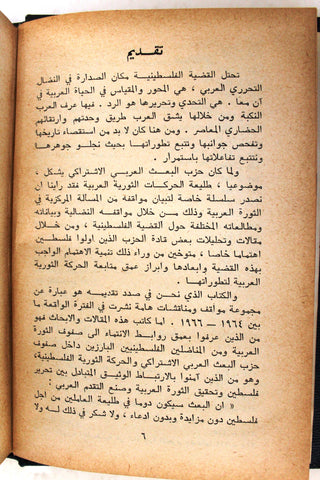 تقديم
تحتل القضية الفلسطينية مكان الصدارة في النضال
التحرري العربي ، هي المحور والمقياس في الحياة العربية في
آن معا . هي التحدي وتحريرها هو الرد . فيها عرف العرب
النكبة ومن خلالها يشق العرب طريق وحدتهم وارتقائهم
الحضاري المعاصر . ومن هنا كان لا بد من استقصاء تاريخها
وتفحص جوانبها وتتبع تطوراتها بحيث نجلو جوهرها
ونتتبع تفاعلاتها باستمرار .
ولما كان حزب البعث العربي الاشتراكي يشكل ،
موضوعيا ، طليعة الحركات الثورية العربية فقد راينا ان
نصدر سلسلة خاصة لتبيان مواقفه من المسألة المركزية في
الثورة العربية وذلك من خلال مواقفه النضالية وبياناته
ومطالعاته المختلفة حول القضية الفلسطينية ، ومن خلال
مقالات وتحليلات بعض قادة الحزب الذين اولوا فلسطين
اهتماما خاصا ، متوخين من وراء ذلك تنمية الاهتمام الواجب
بهذه القضية وابعادها وابراز عمق متابعة الحركة الثورية
العربية لتطوراتها .
والكتاب الذي نحن في صدد تقديمه هو عبارة عن
مجموعة مواقف ومناقشات هامة نشرت في الفترة الواقعة ما
بين ١٩٦٤ - ١٩٦٦ . اما كاتب هذه المقالات والابحاث فهو
من الذين عرفوا بعمق روابط الانتماء الى صفوف الثورة
العربية ومن المناضلين الفلسطينيين البارزين داخل صفوف
حزب البعث العربي الاشتراكي والحركة الثورية الفلسطينية،
وهو من الذين آمنوا بالارتباط الوثيق المتبادل بين تحرير
فلسطين وتحقيق الثورة العربية وصنع التقدم العربي :
« ان البعث سيكون دوما في طليعة العاملين من اجل
فلسطين دون مزايدة وبدون ادعاء ، ولا شكر في ذلك له ولا
٦